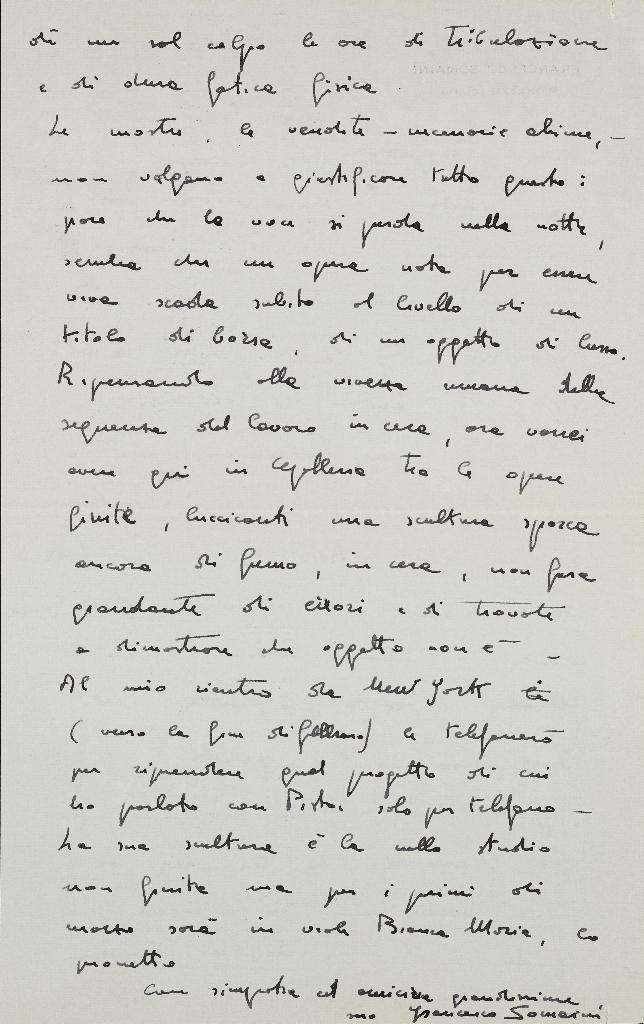 di un sol colpo le ore di tribolazione
e di dura fatica fisica
Le mostre, le vendite - memorie
non valgono a giustificare tutto questo:
pare che la voce si perda nella notte,
sembra che un opera nata per essere
viva scada subito al livello di un
titolo di borsa, di un oggetto di lusso.
Ripensando alla vivezza umana della
sequenza del lavoro in cera, ora vorrei
avere qui in tra le opere
finite, luccicanti una scultura sporca
ancora di fumo, in cera, non fusa
grondante di errori e di trovate
a dimostrare che oggetto non è -
Al mio rientro da New York
(verso la fine di febbraio) le telefonerò
per riprendere quel progetto di cui
ho parlato con solo per telefono -
La sua scultura è la nello studio
non finita ma per i primi di
marzo sarà in viale Bianca Maria, lo
prometto
con simpatia ed amicizia grandissime
suo Francesco Somaini